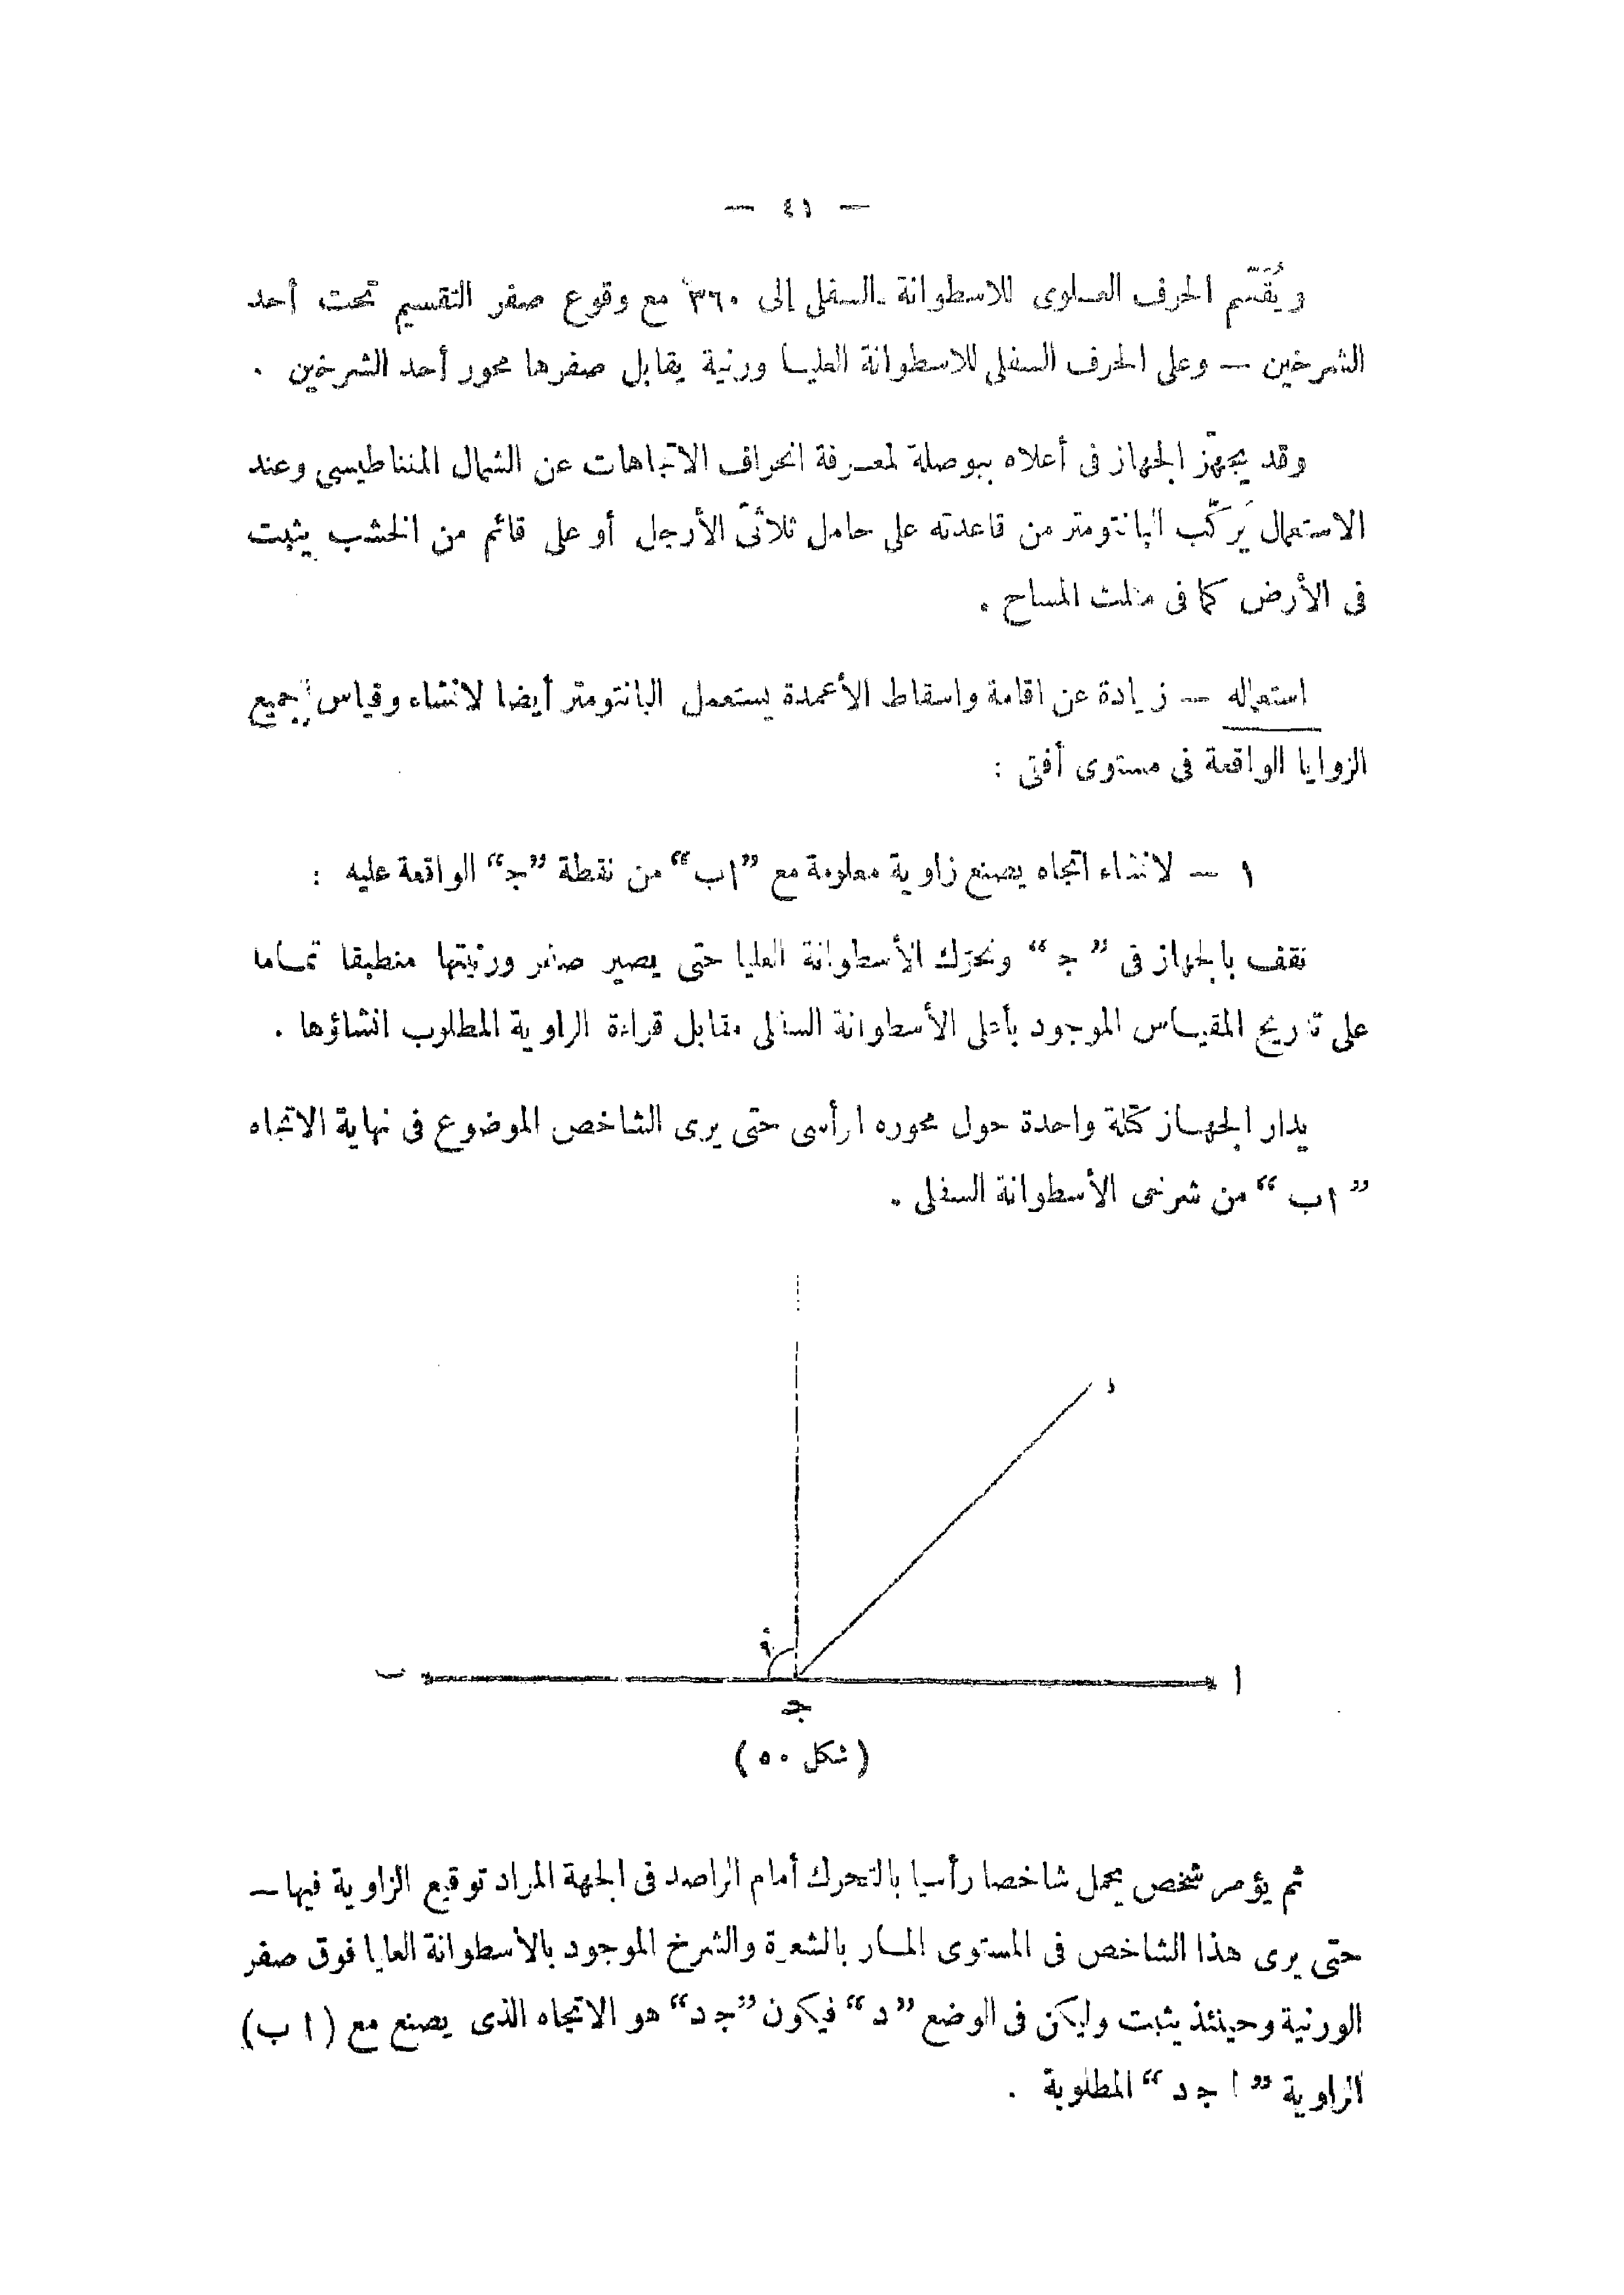 — ٤١ —
ويُقَسّم الحرف العلوى للاسطوانة السفلى إلى ٣٦٠° مع وقوع صفر التقسيم تحت أحد
الشرخين — وعلى الحرف السفلى للاسطوانة العليا ورنية يقابل صفرها محور أحد الشرخين .
وقد يجهّز الجهاز فى أعلاه ببوصلة لمعرفة انحراف الاتجاهات عن الشمال المغناطيسى وعند
الاستعمال يَركّب البانتومتر من قاعدته على حامل ثلاثىّ الأرجل أو على قائم من الخشب يثبت
فى الأرض كما فى مثلث المساح .
استعماله — زيادة عن اقامة واسقاط الأعمدة يستعمل البانتومتر أيضا لانشاء وقياس جميع
الزوايا الواقعة فى مستوى أفقى :
١ — لانشاء اتجاه يصنع زاوية معلومة مع ”اب“ من نقطة ”جـ“ الواقعة عليه :
نقف بالجهاز فى ”جـ“ ونحرّك الأسطوانة العليا حتى يصير صفر ورنيتها منطبقا تماما
على تدريج المقياس الموجود بأعلى الأسطوانة السفلى مقابل قراءة الزاوية المطلوب انشاؤها .
يدار الجهاز ككتلة واحدة حول محوره الرأسى حتى يرى الشاخص الموضوع فى نهاية الاتجاه
”اب“ من شرخى الأسطوانة السفلى .
د
ب
ا
جـ
(شكل ٥٠)
ثم يؤمر شخص يحمل شاخصا رأسيا بالتحرك أمام الراصد فى الجهة المراد توقيع الزاوية فيها —
حتى يرى هذا الشاخص فى المستوى المار بالشعرة والشرخ الموجود بالأسطوانة العليا فوق صفر
الورنية وحينئذ يثبت وليكن فى الوضع ”د“ فيكون ”جـ د“ هو الاتجاه الذى يصنع مع (ا ب)
الزاوية ”ا جـ د“ المطلوبة .